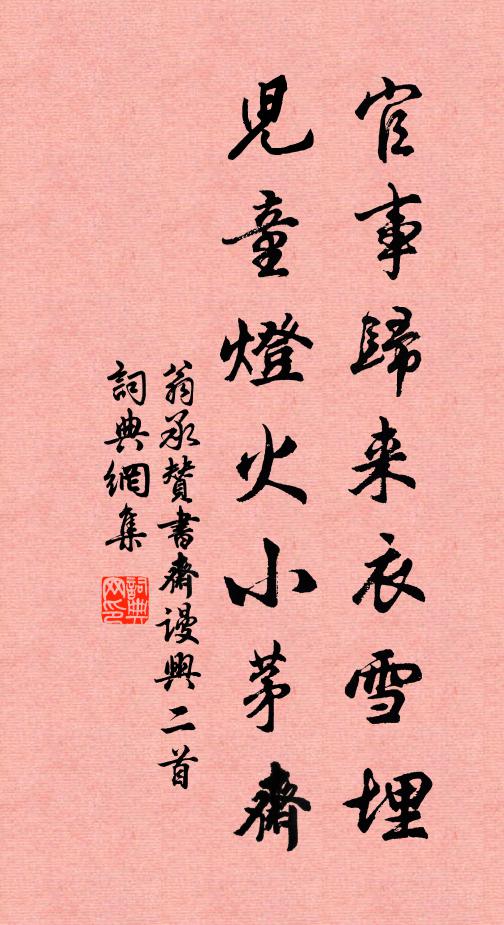 官事歸来衣雪埋
兒童燈火小茅齋
翁承贊書齋謾興二首
詞典網集
詞典网印